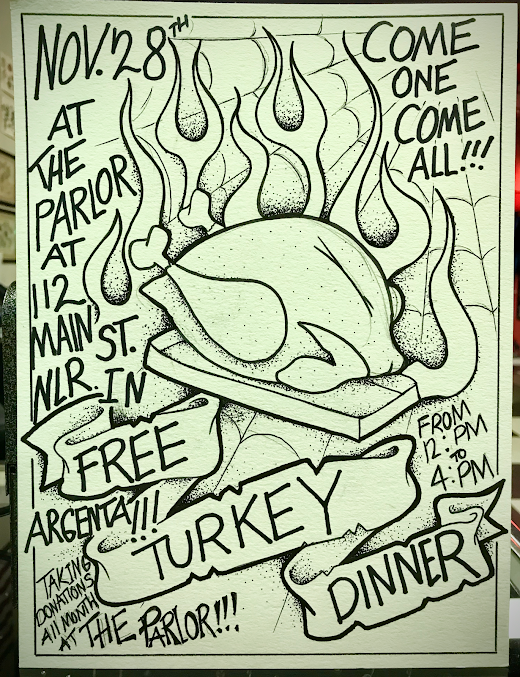 NOV. 28TH
AT
THE
PARLOR
AT
112
MAIN ST.
NLR. IN
ARGENTA!!!
COME
ONE
COME
ALL!!!
FREE
TURKEY
DINNER
FROM
12:PM
TO
4:PM
TAKING
DONATIONS
All MONTH
AT THE PARLOR!!!